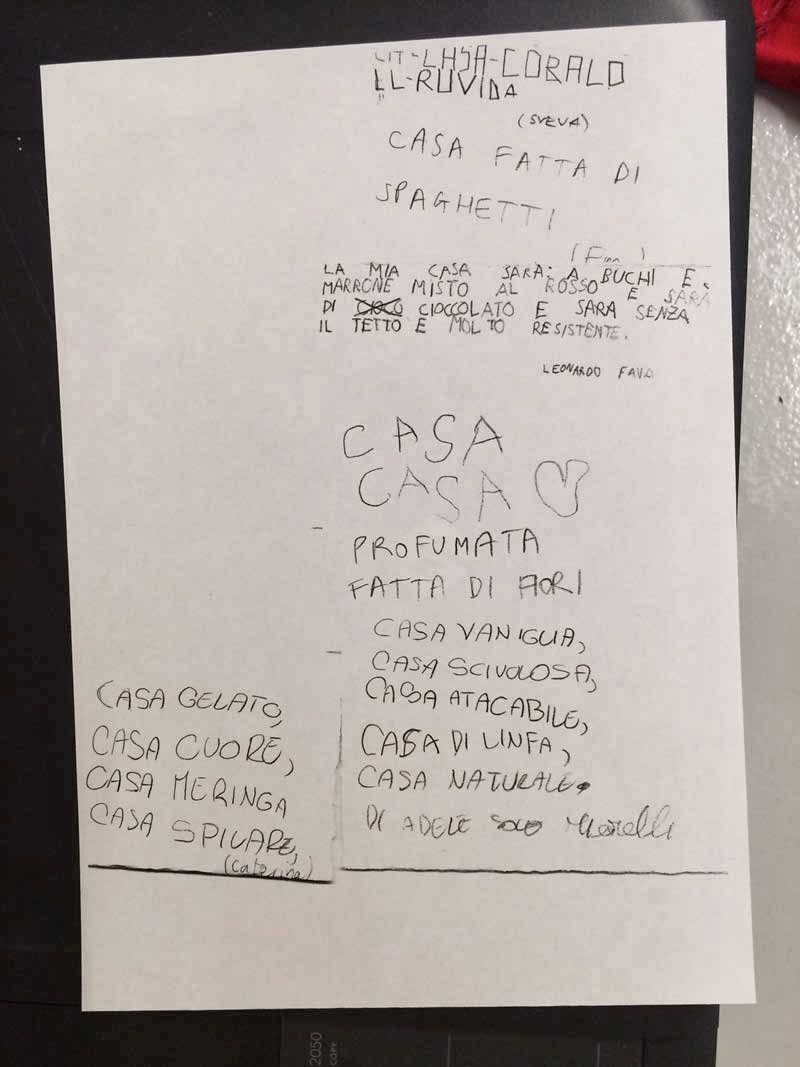 LL-RUVIDA
(SVEVA)
CASA FATTA DI
SPAGHETTI
LA MIA CASA SARA: A BUCHI E
MARRONE MISTO AL ROSSO E SARA
DI CIOCO CIOCCOLATO E SARA SENZA
IL TETTO E MOLTO RESISTENTE.
LEONARDO FAVA
CASA
CASA
PROFUMATA
FATTA DI FIORI
CASA VANIGLIA,
CASA SCIVOLOSA,
CASA ATACABILE,
CASA DI LINFA,
CASA NATURALE.
DI ADELE SOLO
CASA GELATO,
CASA CUORE,
CASA MERINGA
CASA SPILARE,
(Caterina)
2050